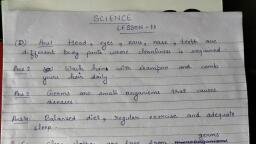 SCIENCE
LESSON-11
(D) Ans1 Head, eyes, ears, nose, teeth are
different body parts whose cleanliness is required
Ans 2 Wash hairs with shampoo and comb
your hair daily
Ans 3 Germs are small organisms that causes
diseases
Ans 4 Balanced diet, regular exercise and adequate
sleep.
germs